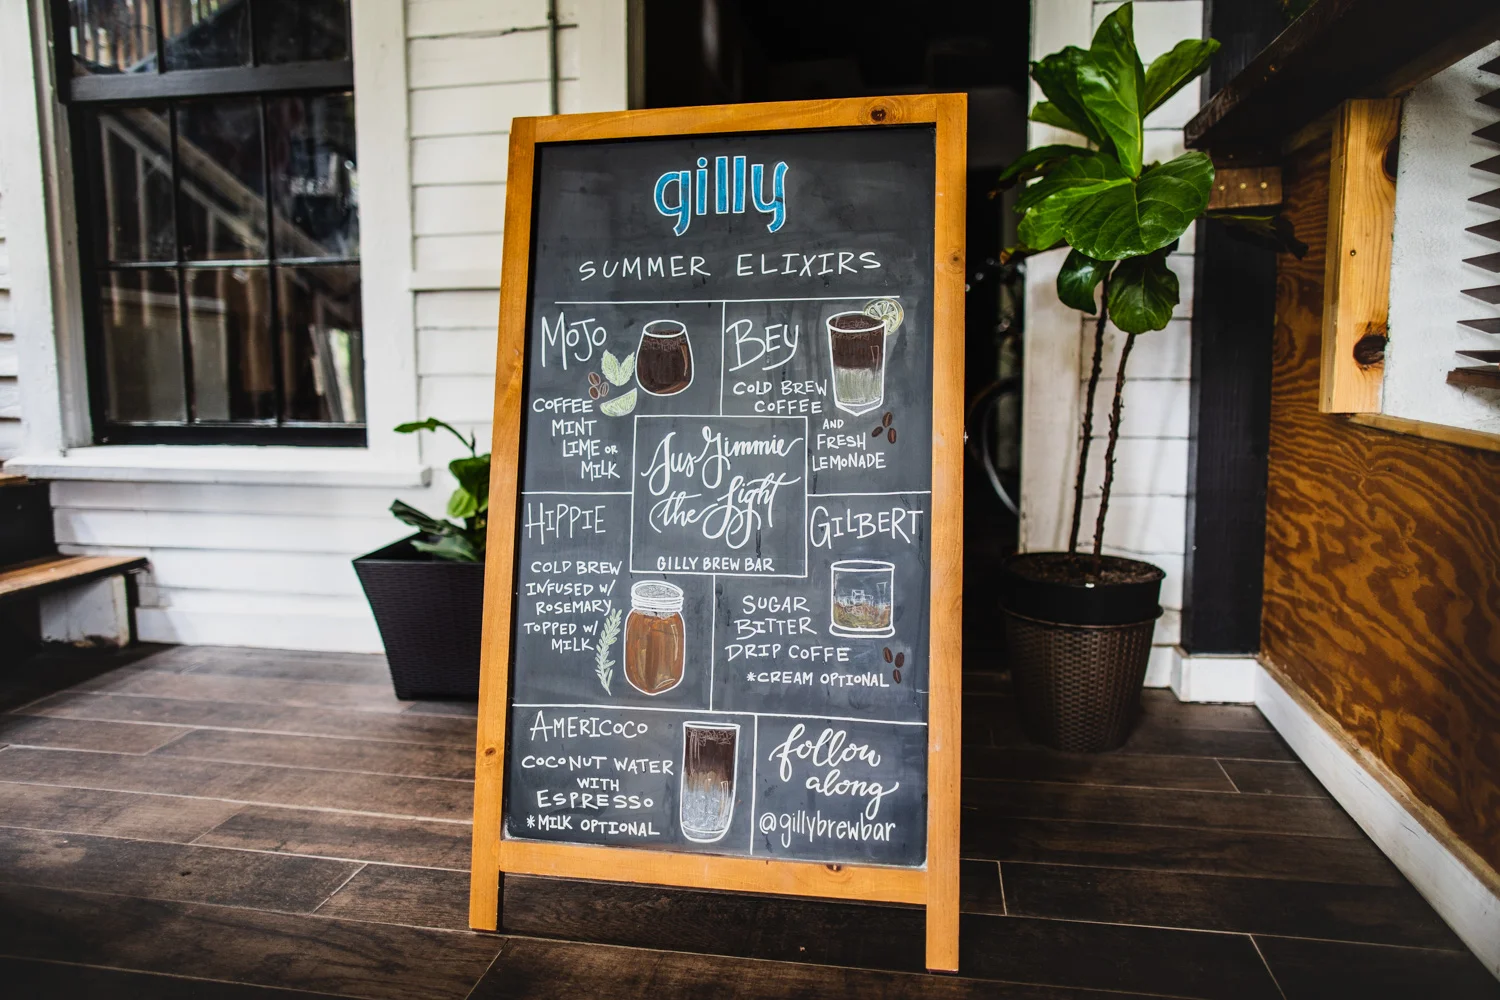 gilly
SUMMER ELIXIRS
MOJO
COFFEE
MINT
LIME OR
MILK
BEY
COLD BREW
COFFEE
AND
FRESH
LEMONADE
Jus Gimmie
the Light
GILLY BREW BAR
HIPPIE
COLD BREW
INFUSED W/
ROSEMARY
TOPPED W/
MILK
GILBERT
SUGAR
BITTER
DRIP COFFE
*CREAM OPTIONAL
AMERICOCO
COCONUT WATER
WITH
ESPRESSO
*MILK OPTIONAL
follow
along
@gillybrewbar